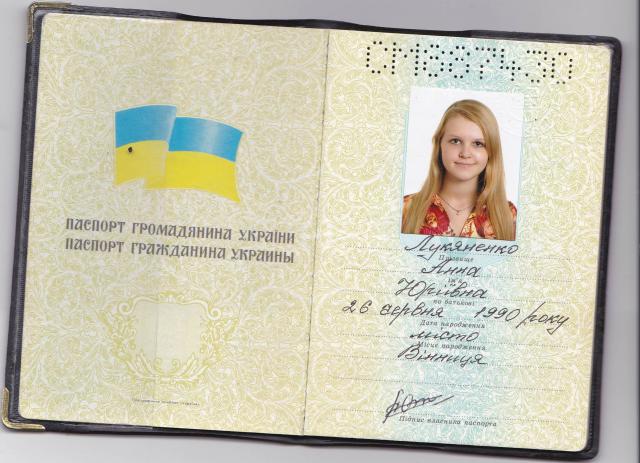 ПАСПОРТ ГРОМАДЯНИНА УКРАЇНИ
ПАСПОРТ ГРАЖДАНИНА УКРАИНЫ
Лукяненко
Прізвище
Анна
ім'я
Юріївна
по батькові
26 серпня 1990 року
Дата народження
місто
Місце народження
Вінниця
Підпис власника паспорта